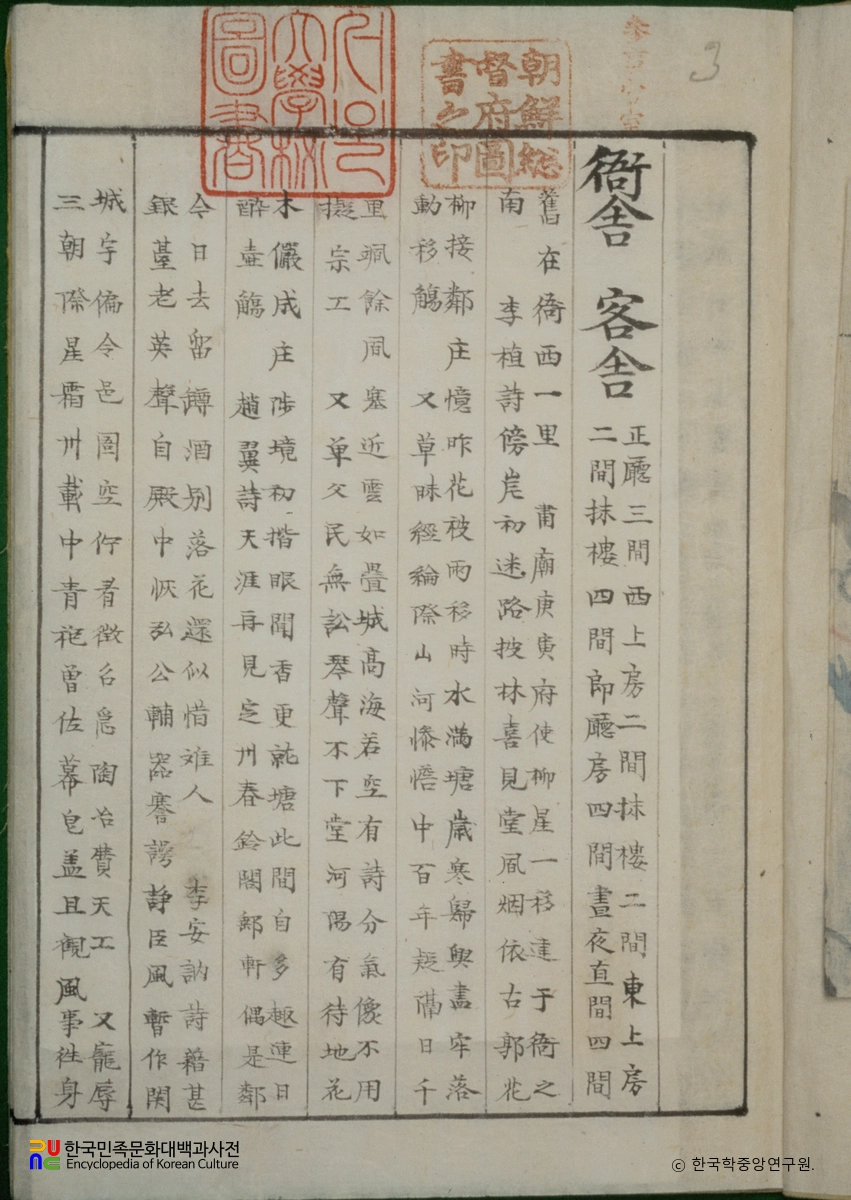 3
朝鮮総
督府圖
書之印
圖書
衙舍 客舍
正廳三間西上房二間抹樓二間東上房
二間抹樓四間郎廳房四間晝夜直間四間
舊在衙西一里 肅廟庚寅府使柳星一移建于衙之
南 李植詩傍岸初迷路披林喜見堂風烟依古郭花
柳接鄰庄憶昨花被雨移時水滿塘歲寒歸興盡牢落
動移觴 又草昧經綸際山河慘憺中百年疑禱日千
里颯餘風塞近雲如疊城高海若空有詩分氣像不用
擬宗工 又單父民無訟琴聲不下堂河陽有待地花
木儼成庄陟境初揩眼聞香更就塘此間自多趣連日
醉壺觴 趙翼詩天涯再見定州春鈴閣郵軒偶是鄰
今日去留罇酒別落花還似惜难人 李安訥詩籍甚
銀臺老英聲自殿中恢弘公輔器謇諤静臣風暫作閑
城宇偏令邑圄空佇看徵召急陶冶費天工 又寵辱
三朝際星霜卅載中青袍曾佐幕皂盖且觀風事徃身
한국민족문화대백과사전
Encyclopedia of Korean Culture
© 한국학중앙연구원.